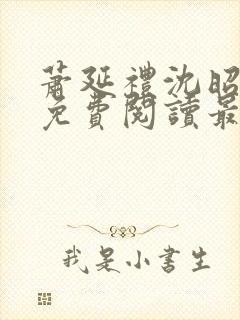 蕭延禮沈昭
免費閱讀最
我是小書生